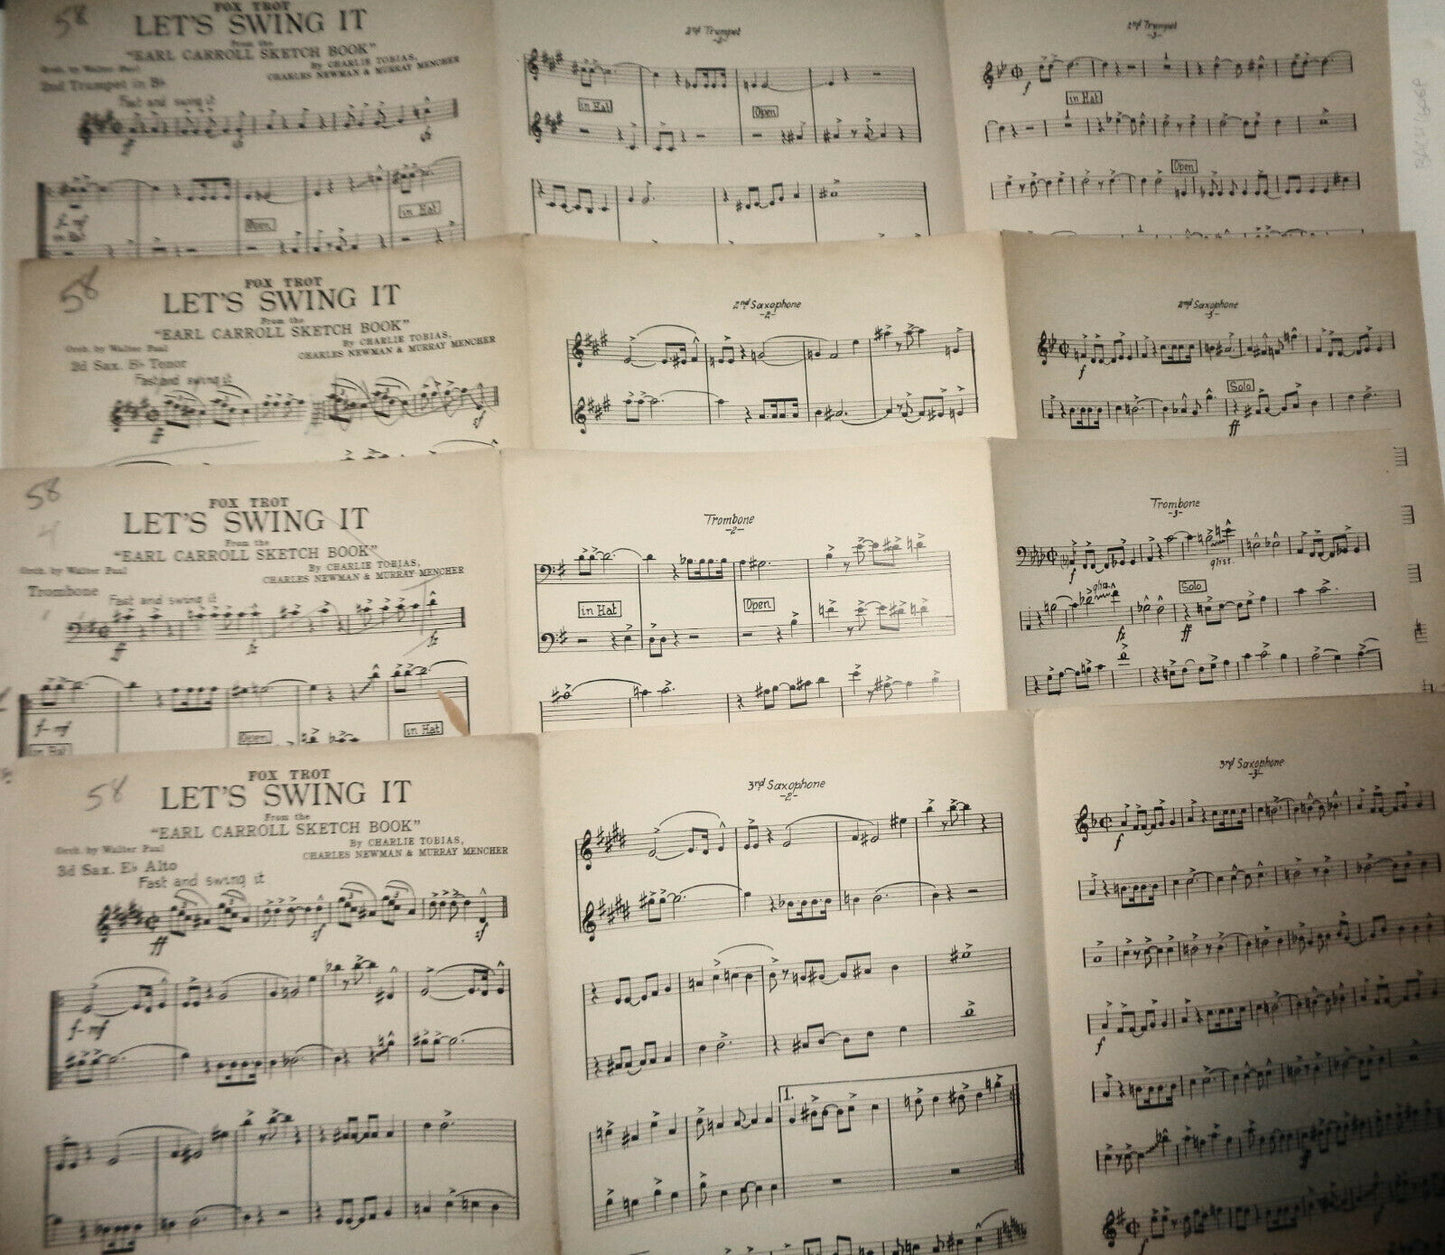 58
FOX TROT
LET'S SWING IT
From the
"EARL CARROLL SKETCH BOOK"
By CHARLIE TOBIAS,
CHARLES NEWMAN & MURRAY MENCHER
Orch. by Walter Paul
2nd Trumpet in B♭
Fast and swing it
f-mf
in Hat
Open
in Hat
2nd Trumpet
-2-
in Hat
Open
2nd Trumpet
-3-
f
in Hat
Open
58
FOX TROT
LET'S SWING IT
From the
"EARL CARROLL SKETCH BOOK"
By CHARLIE TOBIAS,
CHARLES NEWMAN & MURRAY MENCHER
Orch. by Walter Paul
2d Sax. B♭ Tenor
Fast and swing it
ff
sf
2nd Saxophone
-2-
2nd Saxophone
-3-
f
Solo
ff
58
4
FOX TROT
LET'S SWING IT
From the
"EARL CARROLL SKETCH BOOK"
By CHARLIE TOBIAS,
CHARLES NEWMAN & MURRAY MENCHER
Orch. by Walter Paul
Trombone
Fast and swing it
ff
fz
fz
f-mf
in Hat
Open
in Hat
Trombone
-2-
in Hat
Open
Trombone
-3-
f
glist.
gliss.
Solo
fz
ff
58
FOX TROT
LET'S SWING IT
From the
"EARL CARROLL SKETCH BOOK"
By CHARLIE TOBIAS,
CHARLES NEWMAN & MURRAY MENCHER
Orch. by Walter Paul
3d Sax. E♭ Alto
Fast and swing it
ff
sf
sf
f-mf
3rd Saxophone
-2-
1.
3rd Saxophone
-3-
f
f
f
f